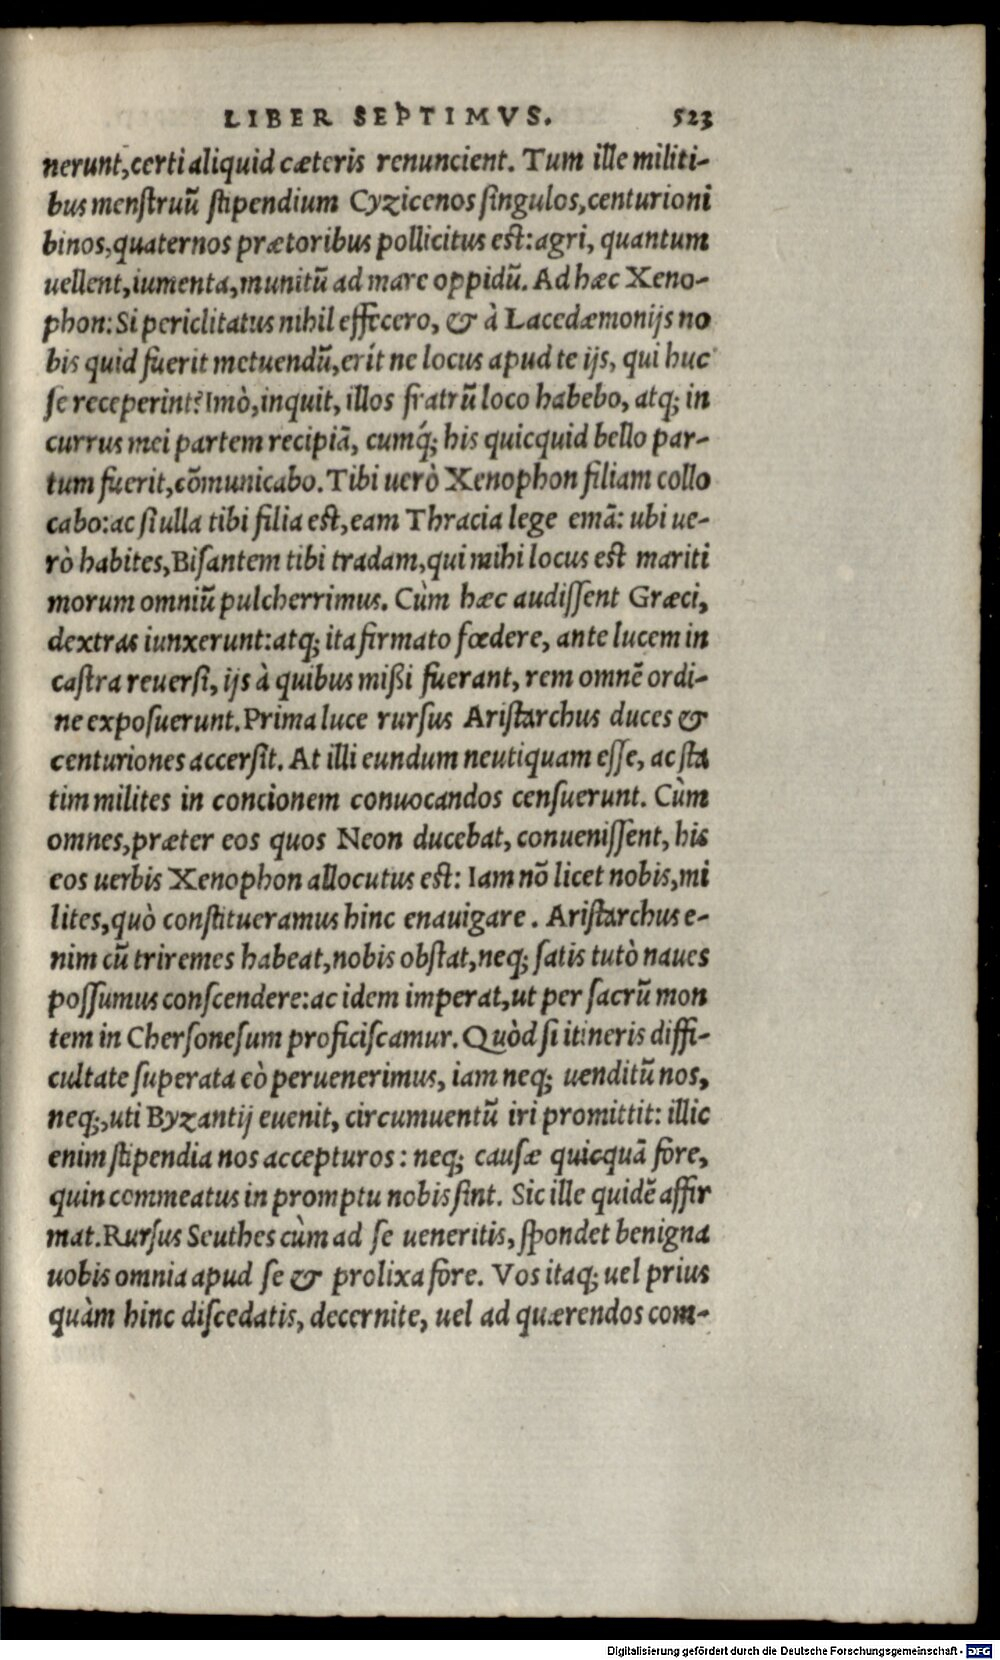 LIBER SEPTIMVS. 523
nerunt, certi aliquid cæteris renuncient. Tum ille militi-
bus menstruũ stipendium Cyzicenos singulos, centurioni
binos, quaternos prætoribus pollicitus est: agri, quantum
uellent, iumenta, munitũ ad mare oppidũ. Ad hæc Xeno-
phon: Si periclitatus nihil effecero, & à Lacedæmonijs no
bis quid fuerit metuendũ, erít ne locus apud te ijs, qui huc
se receperint? Imò, inquit, illos fratrũ loco habebo, atq; in
currus mei partem recipiã, cumq́; his quicquid bello par-
tum fuerit, cõmunicabo. Tibi uerò Xenophon filiam collo
cabo: ac si ulla tibi filia est, eam Thracia lege emã: ubi ue-
rò habites, Bisantem tibi tradam, qui mihi locus est mariti
morum omniũ pulcherrimus. Cùm hæc audissent Græci,
dextras iunxerunt: atq; ita firmato fœdere, ante lucem in
castra reuersi, ijs à quibus mißi fuerant, rem omnẽ ordi-
ne exposuerunt. Prima luce rursus Aristarchus duces &
centuriones accersit. At illi eundum neutiquam esse, ac sta
tim milites in concionem conuocandos censuerunt. Cùm
omnes, præter eos quos Neon ducebat, conuenissent, his
eos uerbis Xenophon allocutus est: Iam nõ licet nobis, mi
lites, quò constitueramus hinc enauigare. Aristarchus e-
nim cũ triremes habeat, nobis obstat, neq; satis tutò naues
possumus conscendere: ac idem imperat, ut per sacrũ mon
tem in Chersonesum proficiscamur. Quòd si itineris diffi-
cultate superata eò peruenerimus, iam neq; uenditũ nos,
neq;, uti Byzantij euenit, circumuentũ iri promittit: illic
enim stipendia nos accepturos: neq; causæ quicquã fore,
quin commeatus in promptu nobis sint. Sic ille quidẽ affir
mat. Rursus Seuthes cùm ad se ueneritis, spondet benigna
uobis omnia apud se & prolixa fore. Vos itaq; uel prius
quàm hinc discedatis, decernite, uel ad quærendos com-
Digitalisierung gefördert durch die Deutsche Forschungsgemeinschaft - DFG